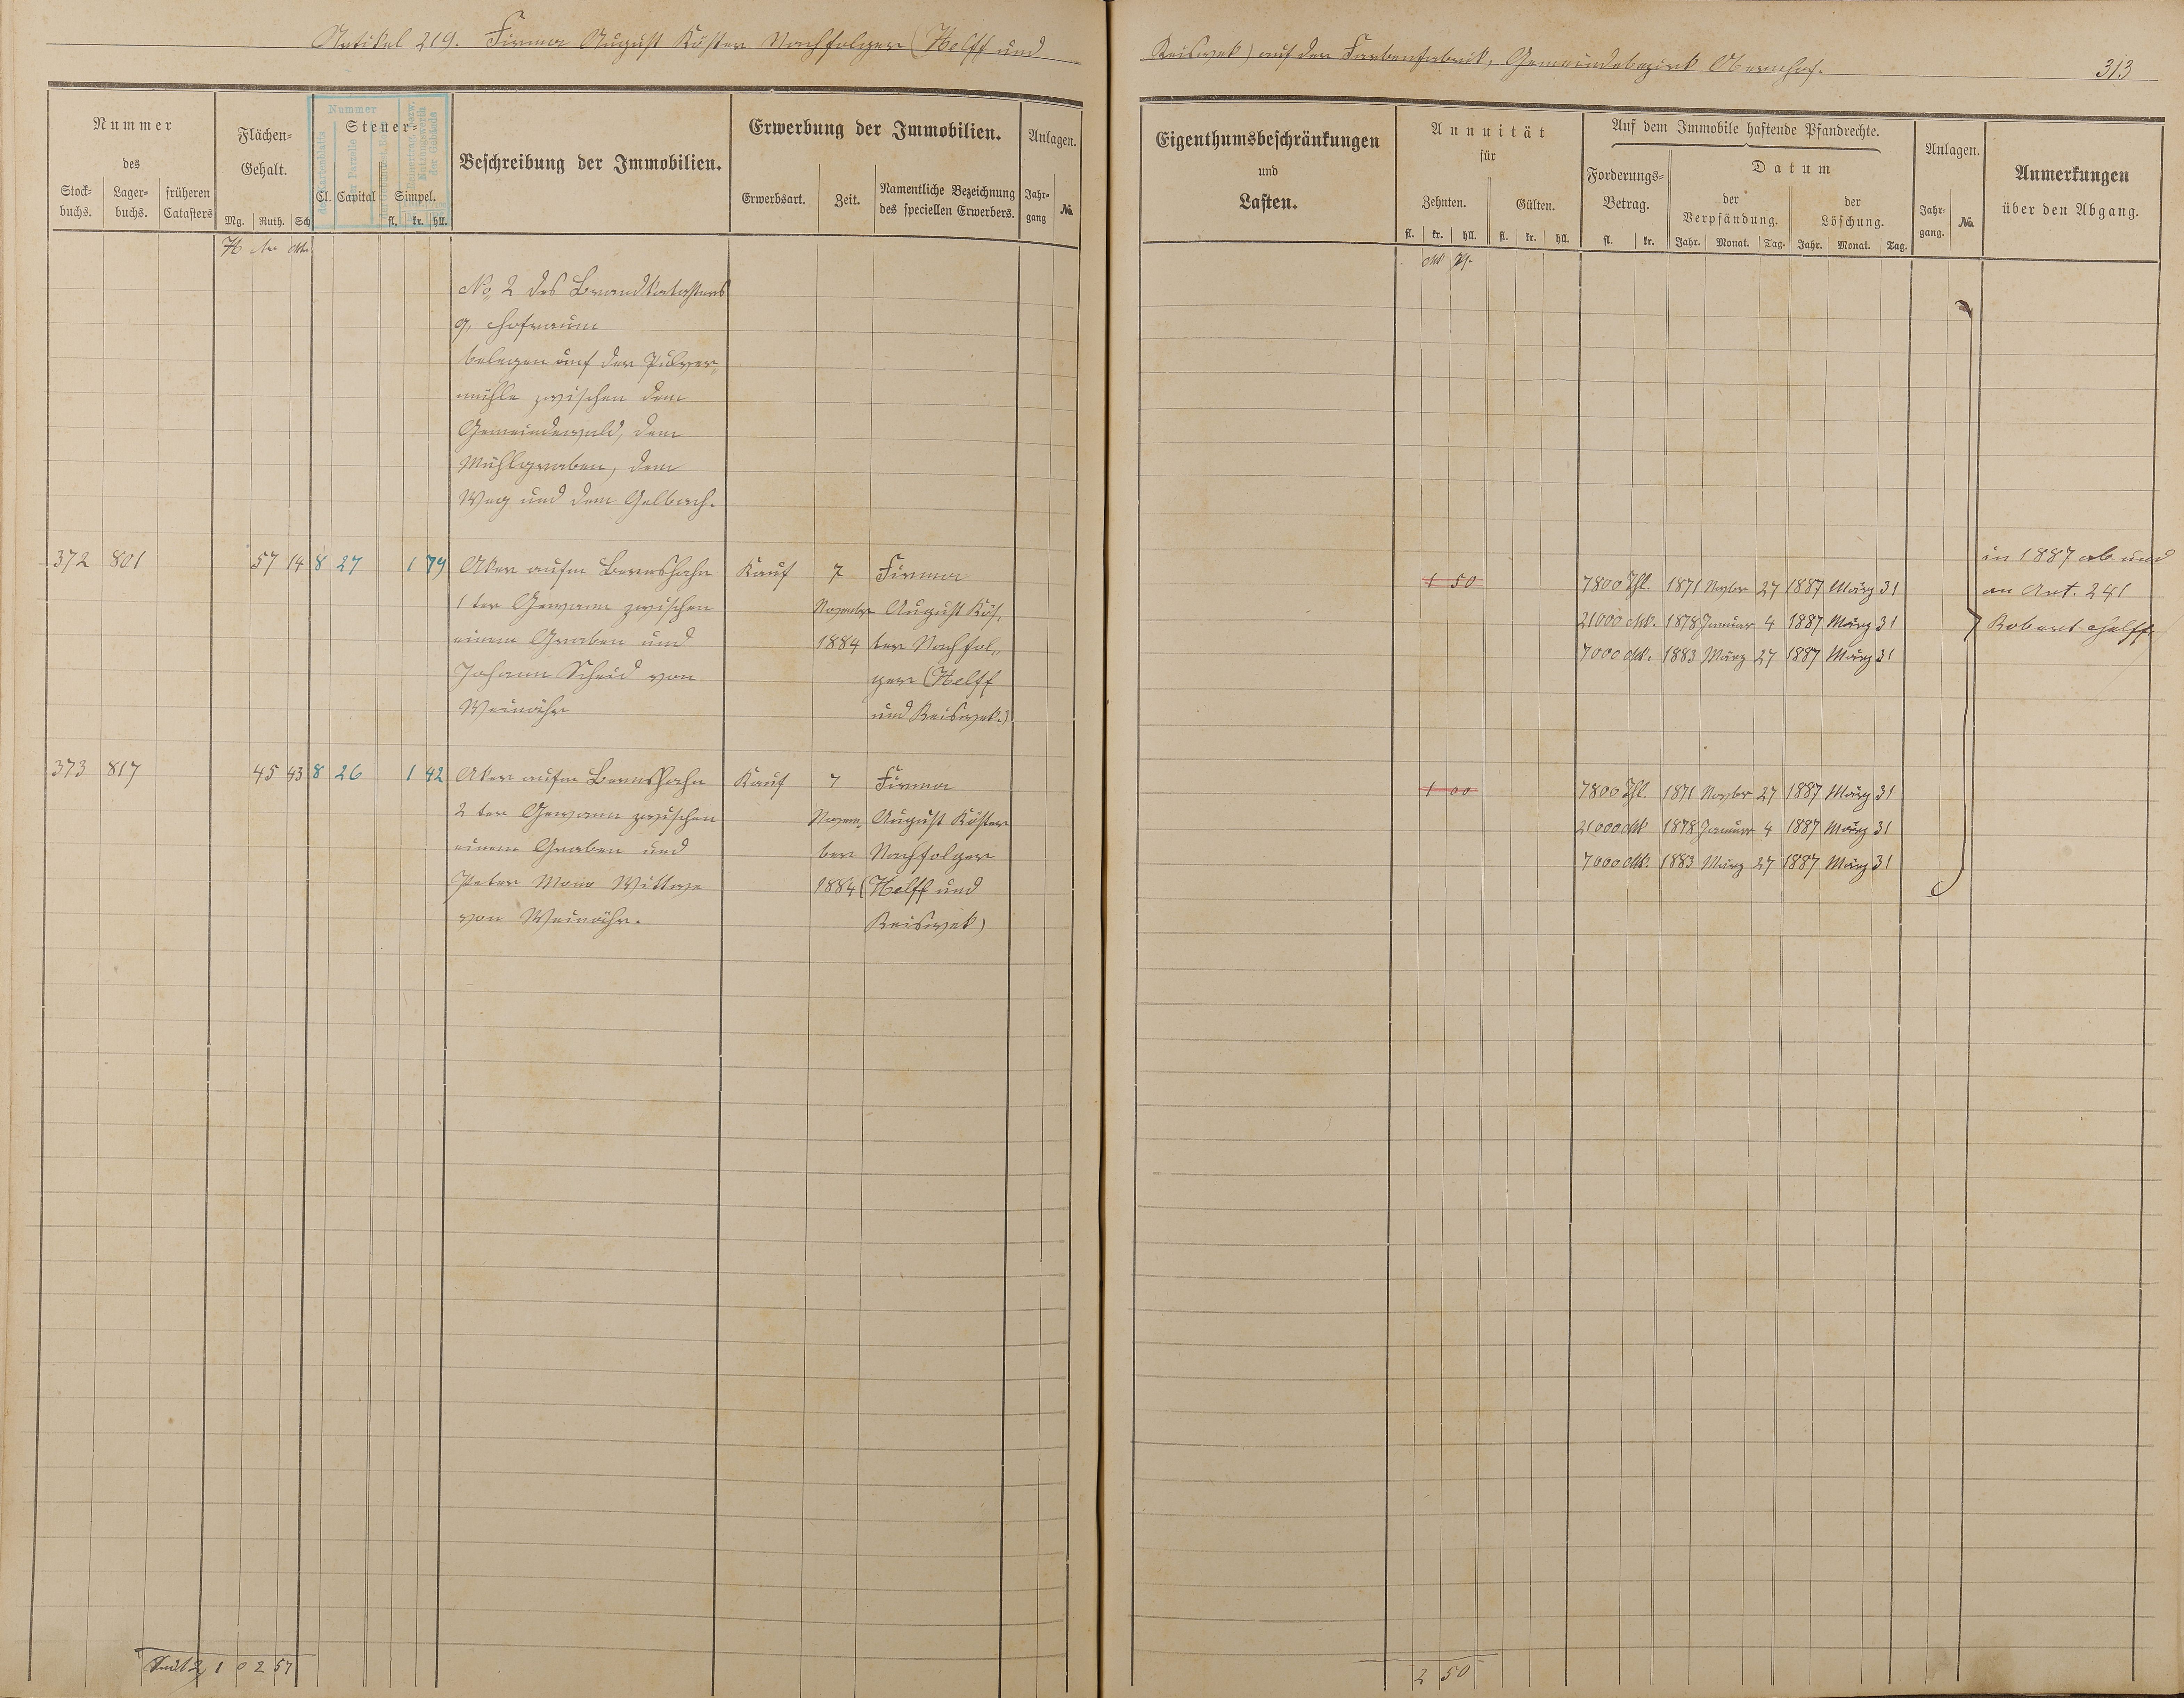 Artikel 219. Firma August Köster Nachfolger (Helff und
Reiswek) auf der Farbenfabrik, Gemeindebezirk Obernhof.
313
Nummer
des
Stock-
buchs.
Lager-
buchs.
früheren
Catasters
Flächen-
Gehalt.
Mg. Ruth. Sch
Nummer
Steuer-
Cl. Capital
Simpel.
fl. kr. hll.
Beschreibung der Immobilien.
Erwerbung der Immobilien.
Erwerbsart.
Zeit.
Namentliche Bezeichnung
des speciellen Erwerbers.
Anlagen.
Jahr-
gang
No.
Eigenthumsbeschränkungen
und
Lasten.
Annuität
für
Zehnten.
Gülten.
fl. kr. hll. fl. kr. hll.
Auf dem Immobile haftende Pfandrechte.
Forderungs-
Betrag.
fl. kr.
Datum
der
Verpfändung.
der
Löschung.
Jahr. Monat. Tag. Jahr. Monat. Tag.
Anlagen.
Jahr-
gang.
No.
Anmerkungen
über den Abgang.
H Ar Mtr.
Mk Pf.
No 2 des Brandkatasters
g, Hofraum
belegen auf der Pulver-
mühle zwischen dem
Gemeindewald, dem
Mühlgraben, dem
Weg und dem Gelbach.
372 801 57 14 8 27 1 79 Aker aufm Bernshahn Kauf 7 Firma
1 ter Gewann zwischen November August Kös-
einem Graben und 1884 ter Nachfol-
Johann Scheid von ger (Helff
Weinähr und Reiswek.)
1 50 7800 Thl. 1871 Novbr 27 1887 März 31
21000 Mk. 1878 Januar 4 1887 März 31
7000 Mk. 1883 März 27 1887 März 31
in 1887 ab und
an Art. 241
Robert Helff
373 817 45 43 8 26 1 42 Aker aufm Bernshahn Kauf 7 Firma
2 ter Gewann zwischen Novem- August Köster
einem Graben und ber Nachfolger
Peter 1884 (Helff und
von Weinähr. Reiswek)
1 00 7800 Thl. 1871 Novbr 27 1887 März 31
21000 Mk 1878 Januar 4 1887 März 31
7000 Mk. 1883 März 27 1887 März 31
1 0 2 57
2 50